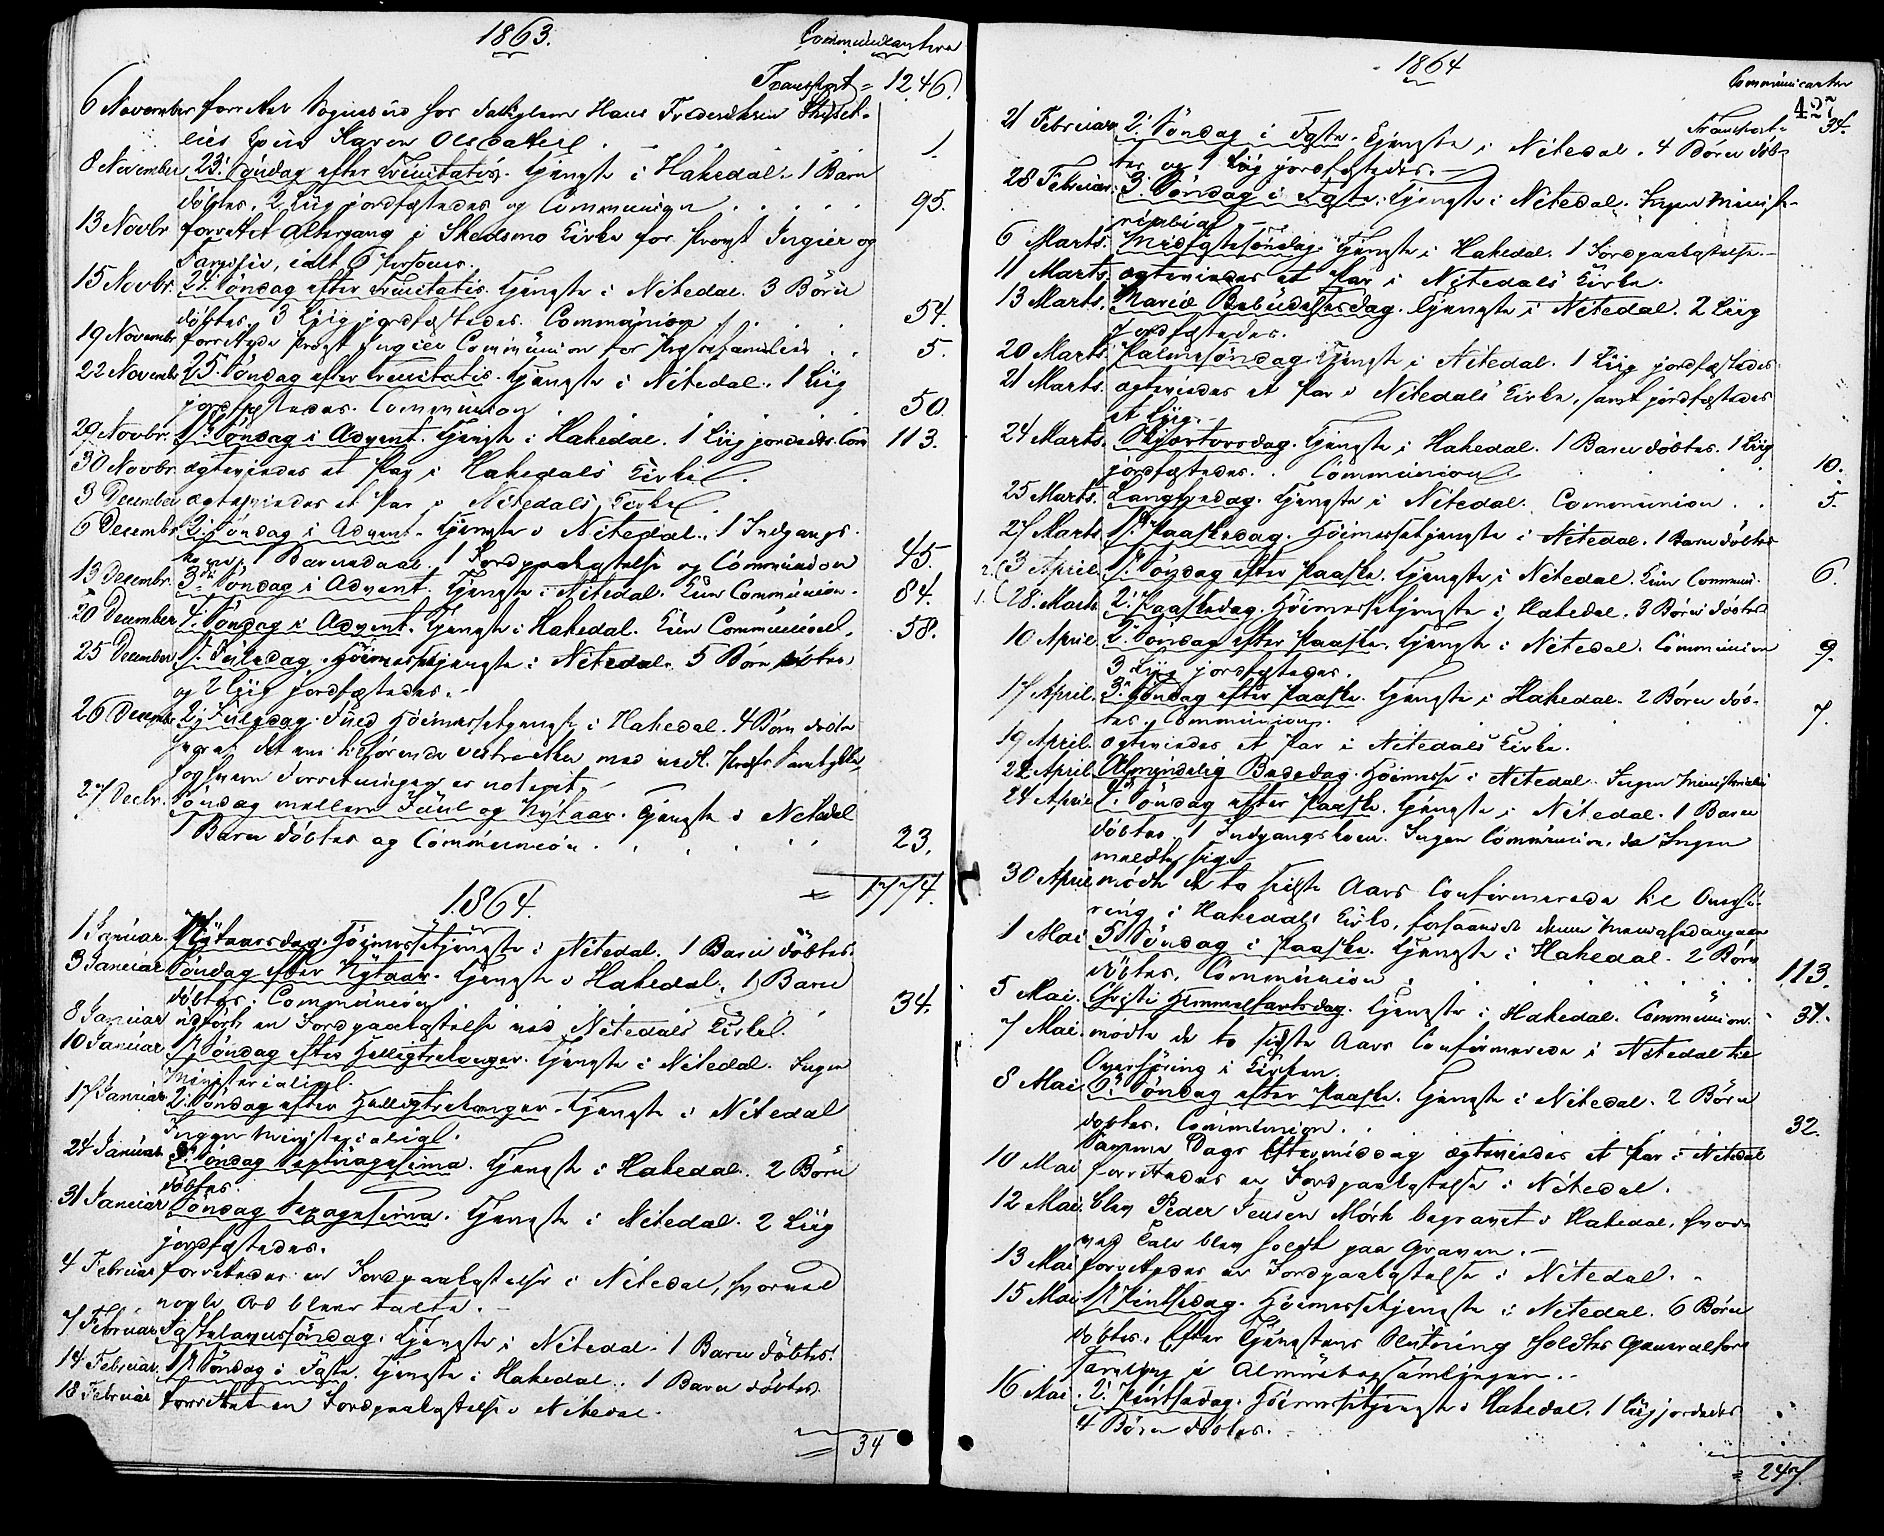 1863.
Communicantere
Transport = 1246.
6 November forrettet Sognebud hos Hans Frederiksen
Karen Olsdatter. 1.
8 November 23. Söndag efter Trinitatis. Tjeneste i Hakedal. 1 Barn
döbtes. 2 Liig jordfæstedes og Communion . . . . . 95.
13 Novbr forrettet Altergang i Skedsmo Kirke for Provst Ingier og
Familie, ialt 6 Personer.
15 Novbr. 24. Söndag efter Trinitatis. Tjeneste i Nitedal. 3 Börn
döbtes. 3 Liig jordfæstedes. Communion . . . . 54.
19 Novembr forrettede Provst Ingier Communion for Præstefamilien . . 5.
22 Novembr 25. Söndag efter Trinitatis. Tjeneste i Nitedal. 1 Liig
jordfæstedes. Communion . . . . 50.
29 Novbr. 1ste Söndag i Advent. Tjeneste i Hakedal. 1 Liig jordedes. Com 113.
30 Novbr. ægteviedes et Par i Hakedals Kirke.
3 December ægteviedes et Par i Nitedals Kirke.
6 Decembr 2. Söndag i Advent. Tjeneste i Nitedal. 1 Indgangs-
kone, 1 Barnedaab. 1 Jordpaakastelse og Communion 45.
13 Decembr. 3die Söndag i Advent. Tjeneste i Nitedal. Kun Communion. 84.
20 December 4. Söndag i Advent. Tjeneste i Hakedal. Kun Communion. 58.
25 December 1ste Juledag. Höimessetjeneste i Nitedal. 5 Börn döbtes,
og 2 Liig jordfæstedes.
26 Decembr 2. Juledag. Höimessetjeneste i Hakedal. 4 Börn döbte
Forretninger er noteret.
27 Decbr. Söndag mellem Juul og Nytaar. Tjeneste i Nitedal
1 Barn döbtes og Communion . . . . . 23.
= 1774.
1864.
1 Januar. Nytaarsdag. Höimessetjeneste i Nitedal. 1 Barn döbtes.
3 Januar Söndag efter Nytaar. Tjeneste i Hakedal. 1 Barn
döbtes. Communion . . . . 34.
8 Januar udfört en Jordpaakastelse ved Nitedals Kirke.
10 Januar. 1ste Söndag efter Helligtrekonger. Tjeneste i Nitedal. Ingen
Ministerialial.
17 Januar 2. Söndag efter Helligtrekonger. Tjeneste i Nitedal
Ingen Ministerialial.
24 Januar Söndag Septuagesima. Tjeneste i Hakedal. 2 Börn
döbtes.
31 Januar Söndag Sexagesima. Tjeneste i Nitedal. 2 Liig
jordfæstedes.
4 Februar forrettedes en Jordpaakastelse i Nitedal, hvorved
nogle Ord bleve talte.
7 Februar Fastelavnssöndag. Tjeneste i Nitedal. 1 Barn döbtes.
14 Februar. 1ste Söndag i Faste. Tjeneste i Hakedal. 1 Barn döbtes.
18 Februar forrettet en Jordpaakastelse i Nitedal.
= 34
1864
Communicanter
427
Transport = 34.
21 Februar 2. Söndag i Faste. Tjeneste i Nitedal. 4 Börn döb-
tes og 1 Liig jordfæstedes.
28 Februar 3. Söndag i Faste. Tjeneste i Nitedal. Ingen Ministe-
rialial
6 Marts. Midfastesöndag. Tjeneste i Hakedal. 1 Jordpaakastelse.
11 Marts. ægteviedes et Par i Nitedals Kirke.
13 Marts. Mariæ Bebudelsesdag. Tjeneste i Nitedal. 2 Liig
jordfæstedes.
20 Marts. Palmesöndag. Tjeneste i Nitedal. 1 Liig jordfæstedes.
21 Marts. ægteviedes et Par i Nitedals Kirke, samt jordfæstedes
et Liig.
24 Marts. Skjærtorsdag. Tjeneste i Hakedal. 1 Barn döbtes. 1 Liig
jordfæstedes. Communion . . . 10.
25 Marts. Langfredag. Tjeneste i Nitedal. Communion . . 5.
27 Marts. 1ste Paaskedag. Höimessetjeneste i Nitedal. 1 Barn döbtes
2. 3 April. 1ste Söndag efter Paaske. Tjeneste i Nitedal. Kun Commun. 6.
1. 28. Marts 2. Paaskedag. Höimessetjeneste i Hakedal. 3 Börn döbtes
10 April. 2. Söndag efter Paaske. Tjeneste i Nitedal. Communion 9.
3 Liig jordfæstedes.
17 April. 3. Söndag efter Paaske. Tjeneste i Hakedal. 2 Börn döb-
tes. Communion. 7.
19 April. ægteviedes et Par i Nitedals Kirke.
22 April Almindelig Bededag. Höimesse i Nitedal. Ingen Ministerialia
24 April 4. Söndag efter Paaske. Tjeneste i Nitedal. 1 Barn
döbtes. 1 Indgangskone. Ingen Communion, da Ingen
meldte sig.
30 April mödte de to sidste Aars Confirmerede til Overhö-
ring i Hakedals Kirke, forsaavidt
1 Mai 5. Söndag i Paaske. Tjeneste i Hakedal. 2 Börn
döbtes. Communion . . . . . . 113.
5 Mai. Christi Himmelfartsdag. Tjeneste i Hakedal. Communion. 31.
7 Mai. mödte de to sidste Aars Confirmerede i Nitedal til
Overhöring i Kirken.
8 Mai. 6. Söndag efter Paaske. Tjeneste i Nitedal. 2 Börn
döbtes. Communion. . . . . 32.
Samme Dags Eftermiddag ægteviedes et Par i Nitedal
10 Mai forrettedes en Jordpaakastelse i Nitedal.
12 Mai. blev Peder Jensen Mörk begravet i Hakedal, hvor-
ved Tale blev holdt paa Graven.
13 Mai forrettedes en Jordpaakastelse i Nitedal.
15 Mai 1ste Pintsedag. Höimessetjeneste i Nitedal. 6 Börn
döbtes. Efter Tjenestens Slutning holdtes Generalfor-
samling i Almuebogsamlingen.
16 Mai. 2. Pintsedag. Höimessetjeneste i Hakedal. 1 Liig jordedes
4 Börn döbtes.
= 247.